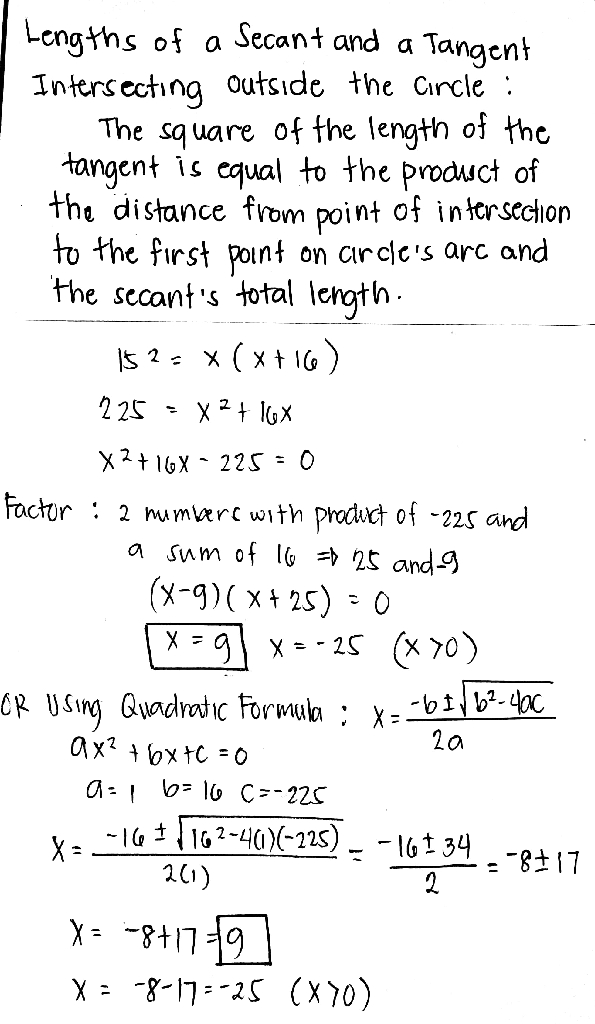 Lengths of a Secant and a Tangent
Intersecting outside the Circle :
The square of the length of the
tangent is equal to the product of
the distance from point of intersection
to the first point on circle's arc and
the secant's total length.
15² = x(x+16)
225 = x²+16x
x²+16x-225 = 0
Factor : 2 numbers with product of -225 and
a sum of 16 ⇒ 25 and -9
(x-9)(x+25) = 0
x = 9 x = -25 (x>0)
OR Using Quadratic Formula : x = (-b±√(b²-4ac))/2a
ax²+bx+c = 0
a=1 b=16 c=-225
x = (-16±√(16²-4(1)(-225)))/2(1) = (-16±34)/2 = -8±17
x = -8+17=9
x = -8-17=-25 (x>0)